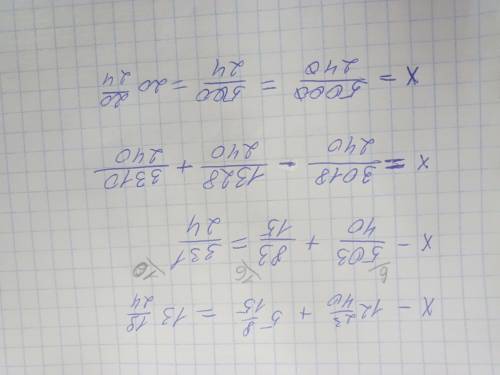 x - 12 23/40 + 5 8/15 = 13 19/24
x - 503/40 + 83/15 = 331/24
x = 3018/240 - 1328/240 + 3310/240
x = 5000/240 = 500/24 = 20 20/24